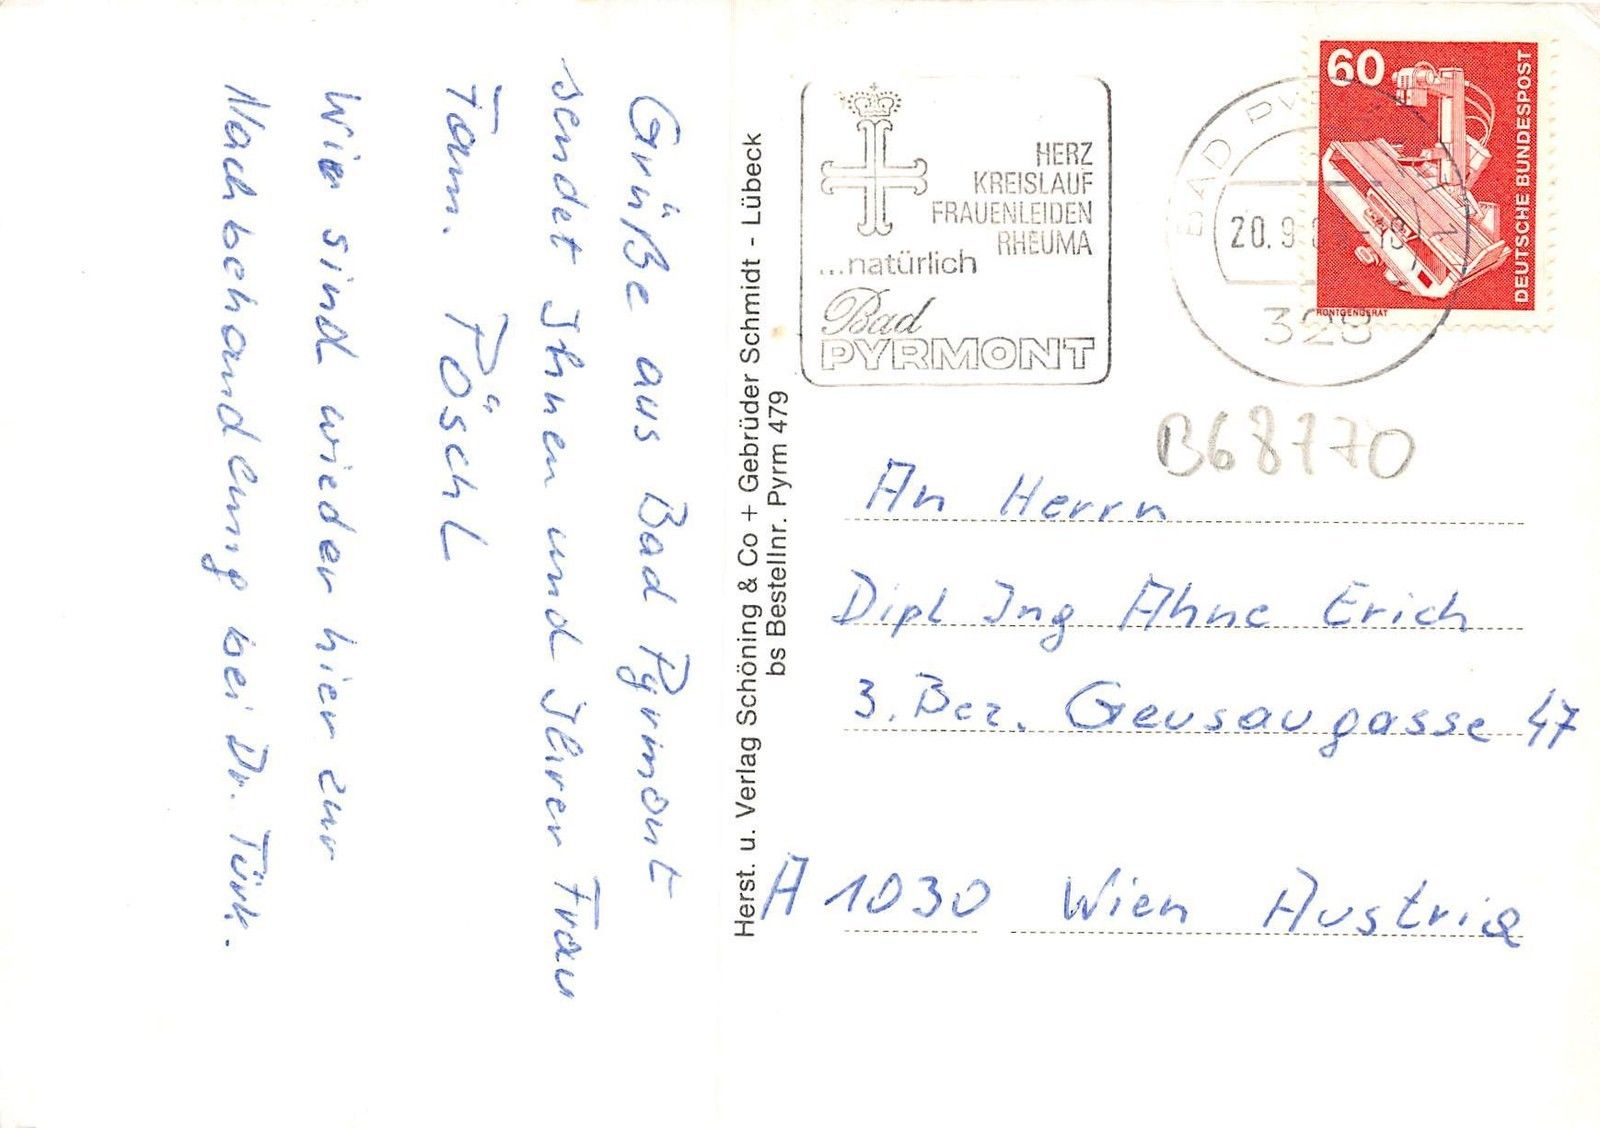 Grüße aus Bad Pyrmont
sendet Ihnen und Ihrer Frau
Fam. Pöschl
Wir sind wieder hier zur
Nachbehandlung bei Dr. Türk.
Herst. u. Verlag Schöning & Co + Gebrüder Schmidt - Lübeck
bs Bestellnr. Pyrm 479
HERZ
KREISLAUF
FRAUENLEIDEN
RHEUMA
...natürlich
Bad
PYRMONT
BAD PY
20.9.
328
60
DEUTSCHE BUNDESPOST
RÖNTGENGERÄT
B68770
An Herrn
Dipl Ing Ahne Erich
3. Bez. Geusaugasse 47
A 1030 Wien Austria